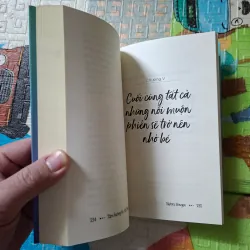 Chương V
Cuối cùng tất cả
những nỗi muộn
phiền sẽ trở nên
nhỏ bé